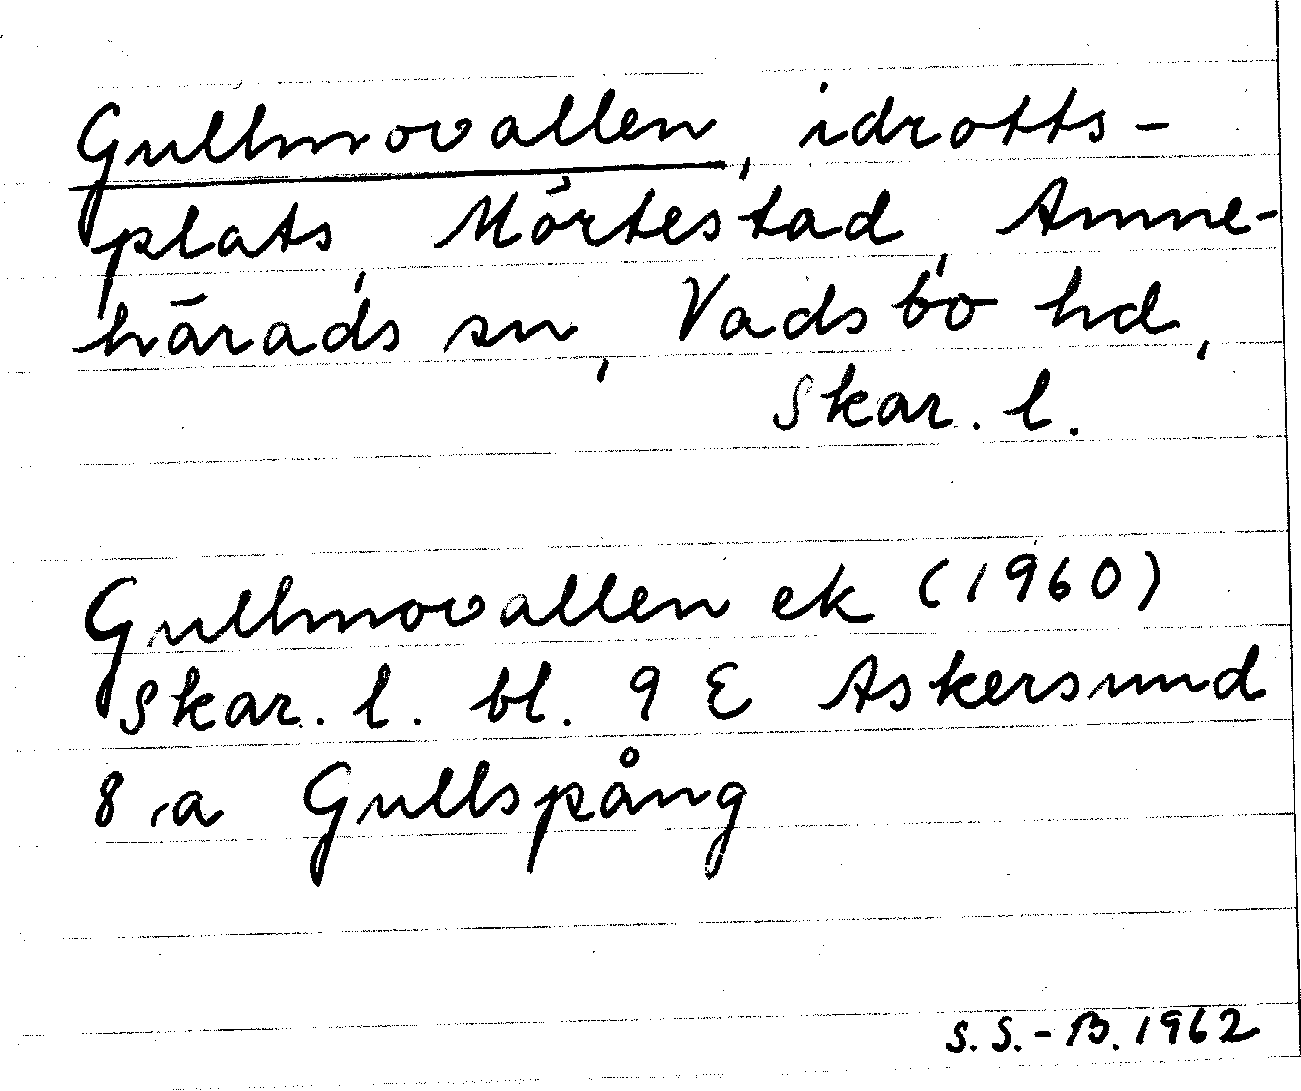 Gullmovallen, idrotts-
plats, Mörtestad, Amne-
härads sn, Vadsbo hd,
Skar. l.
Gullmovallen ek (1960)
Skar. l. bl. 9 E Askersund
8 a Gullspång
S. S.-B. 1962